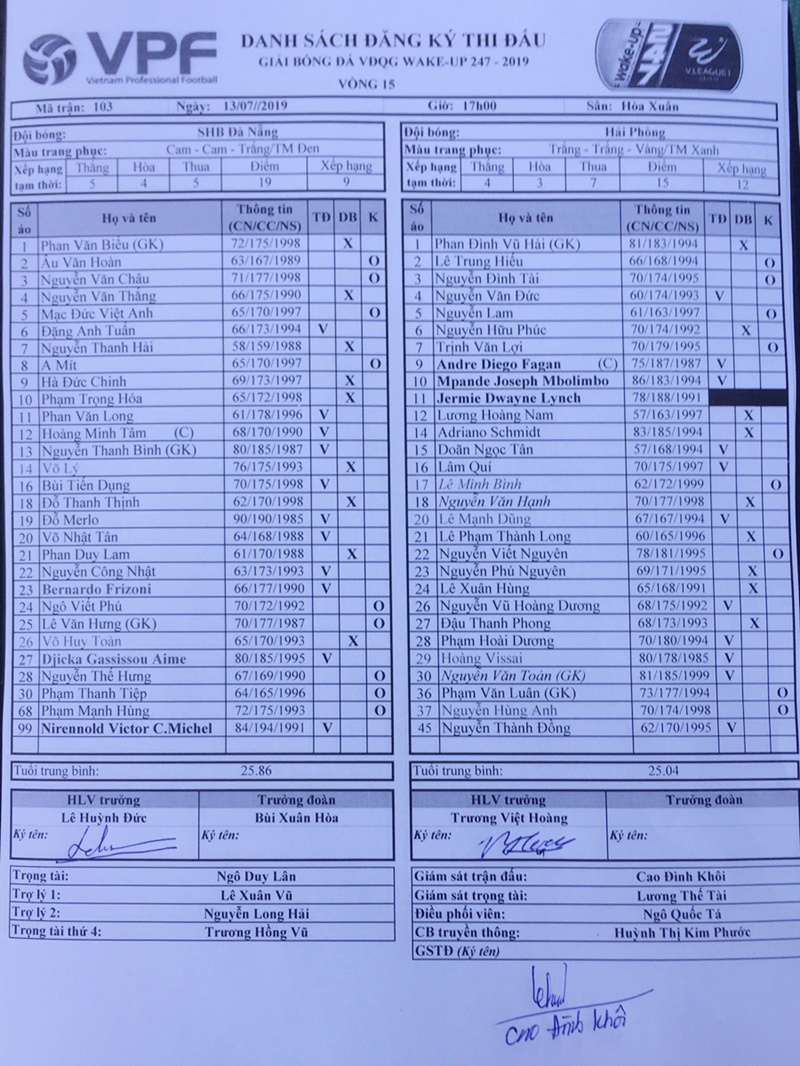 VPF
Vietnam Professional Football
DANH SÁCH ĐĂNG KÝ THI ĐẤU
GIẢI BÓNG ĐÁ VĐQG WAKE-UP 247 - 2019
VÒNG 15
wake-up 247 V.LEAGUE 1
Mã trận: 103 Ngày: 13/07//2019 Giờ: 17h00 Sân: Hòa Xuân
Đội bóng: SHB Đà Nẵng
Màu trang phục: Cam - Cam - Trắng/TM Đen
Xếp hạng tạm thời: Thắng Hòa Thua Điểm Xếp hạng
5 4 5 19 9
Số áo Họ và tên Thông tin (CN/CC/NS) TĐ DB K
1 Phan Văn Biểu (GK) 72/175/1998 X
2 Âu Văn Hoàn 63/167/1989 O
3 Nguyễn Văn Châu 71/177/1998 O
4 Nguyễn Văn Thắng 66/175/1990 X
5 Mạc Đức Việt Anh 65/170/1997 O
6 Đặng Anh Tuấn 66/173/1994 V
7 Nguyễn Thanh Hải 58/159/1988 X
8 A Mít 65/170/1997 O
9 Hà Đức Chinh 69/173/1997 X
10 Phạm Trọng Hóa 65/172/1998 X
11 Phan Văn Long 61/178/1996 V
12 Hoàng Minh Tâm (C) 68/170/1990 V
13 Nguyễn Thanh Bình (GK) 80/185/1987 V
14 Võ Lý 76/175/1993 X
16 Bùi Tiến Dụng 70/175/1998 V
18 Đỗ Thanh Thịnh 62/170/1998 X
19 Đỗ Merlo 90/190/1985 V
20 Võ Nhật Tân 64/168/1988 V
21 Phan Duy Lam 61/170/1988 X
22 Nguyễn Công Nhật 63/173/1993 V
23 Bernardo Frizoni 66/177/1990 V
24 Ngô Viết Phú 70/172/1992 O
25 Lê Văn Hưng (GK) 70/177/1987 O
26 Võ Huy Toàn 65/170/1993 X
27 Djicka Gassissou Aime 80/185/1995 V
28 Nguyễn Thế Hưng 67/169/1990 O
30 Phạm Thanh Tiệp 64/165/1996 O
68 Phạm Mạnh Hùng 72/175/1993 O
99 Nirennold Victor C.Michel 84/194/1991 V
Tuổi trung bình: 25.86
HLV trưởng Trưởng đoàn
Lê Huỳnh Đức Bùi Xuân Hòa
Ký tên: Ký tên:
Trọng tài: Ngô Duy Lân
Trợ lý 1: Lê Xuân Vũ
Trợ lý 2: Nguyễn Long Hải
Trọng tài thứ 4: Trương Hồng Vũ
Đội bóng: Hải Phòng
Màu trang phục: Trắng - Trắng - Vàng/TM Xanh
Xếp hạng tạm thời: Thắng Hòa Thua Điểm Xếp hạng
4 3 7 15 12
Số áo Họ và tên Thông tin (CN/CC/NS) TĐ DB K
1 Phan Đình Vũ Hải (GK) 81/183/1994 X
2 Lê Trung Hiếu 66/168/1994 O
3 Nguyễn Đình Tài 70/174/1995 O
4 Nguyễn Văn Đức 60/174/1993 V
5 Nguyễn Lam 61/163/1997 O
6 Nguyễn Hữu Phúc 70/174/1992 X
7 Trịnh Văn Lợi 70/179/1995 O
9 Andre Diego Fagan (C) 75/187/1987 V
10 Mpande Joseph Mbolimbo 86/183/1994 V
11 Jermie Dwayne Lynch 78/188/1991
12 Lương Hoàng Nam 57/163/1997 X
14 Adriano Schmidt 83/185/1994 X
15 Doãn Ngọc Tân 57/168/1994 V
16 Lâm Quí 70/175/1997 V
17 Lê Minh Bình 62/172/1999 O
18 Nguyễn Văn Hạnh 70/177/1998 X
20 Lê Mạnh Dũng 67/167/1994 V
21 Lê Phạm Thành Long 60/165/1996 X
22 Nguyễn Viết Nguyên 78/181/1995 O
23 Nguyễn Phú Nguyên 69/171/1995 X
24 Lê Xuân Hùng 65/168/1991 X
26 Nguyễn Vũ Hoàng Dương 68/175/1992 V
27 Đậu Thanh Phong 68/173/1993 X
28 Phạm Hoài Dương 70/180/1994 V
29 Hoàng Vissai 80/178/1985 V
30 Nguyễn Văn Toản (GK) 81/185/1999 V
36 Phạm Văn Luân (GK) 73/177/1994 O
37 Nguyễn Hùng Anh 70/174/1998 O
45 Nguyễn Thành Đồng 62/170/1995 V
Tuổi trung bình: 25.04
HLV trưởng Trưởng đoàn
Trương Việt Hoàng
Ký tên: Ký tên:
Giám sát trận đấu: Cao Đình Khôi
Giám sát trọng tài: Lương Thế Tài
Điều phối viên: Ngô Quốc Tá
CB truyền thông: Huỳnh Thị Kim Phước
GSTĐ (Ký tên)
Cao Đình Khôi